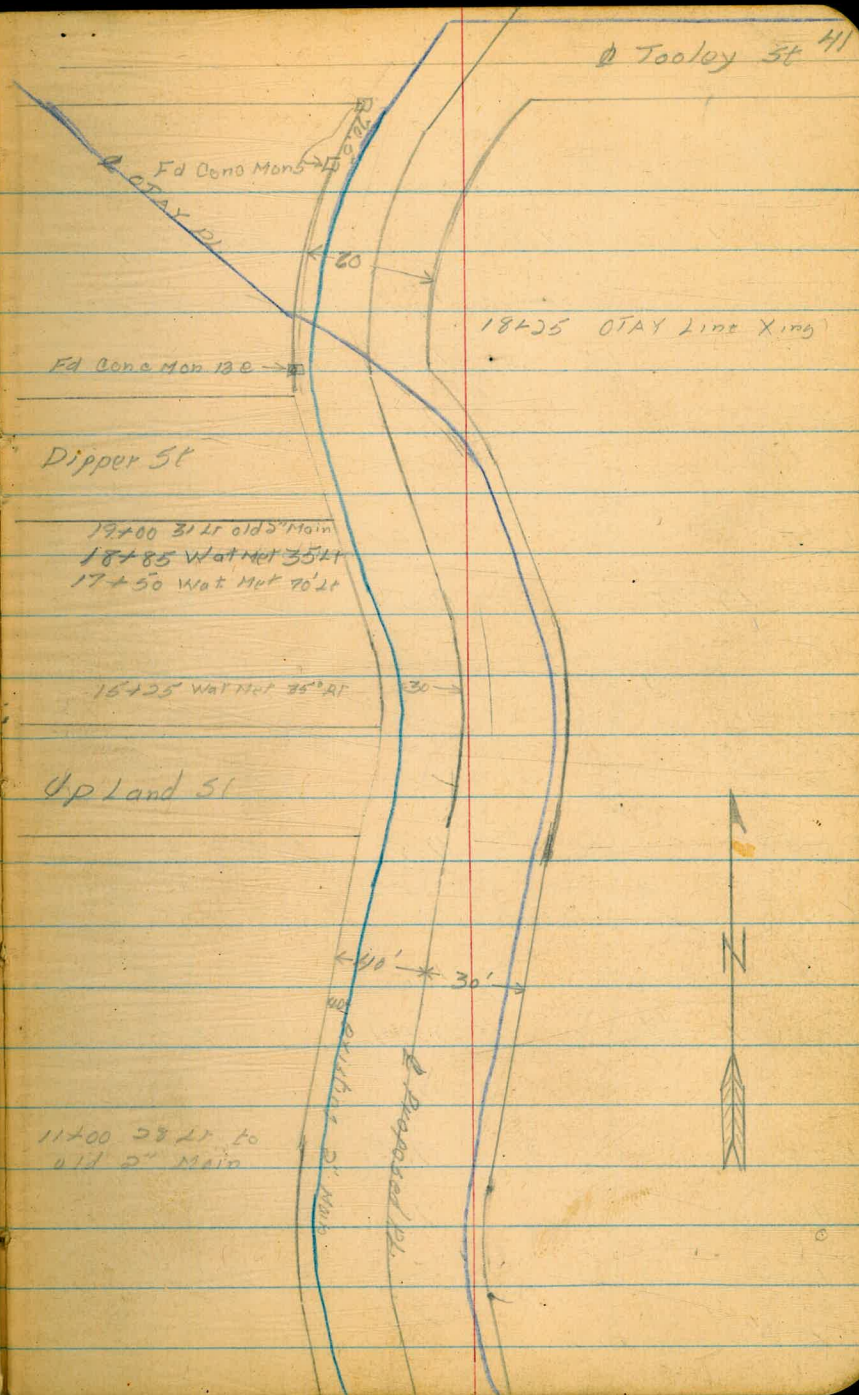 41
℄ Tooley St
20.0
Fd Conc Mons
℄ OTAY PL
18+25 OTAY Line Xing
Fd Conc Mon BC
Dipper St
19+00 31 Lt old 2" Main
18+85 Wat Met 35 Lt
17+50 Wat Met 70' Lt
15+25 Wat Met 35° Rt
30
Upland St
40'
30'
N
existing 2" Main
℄ Proposed PL
11+00 28 Lt to
old 2" Main